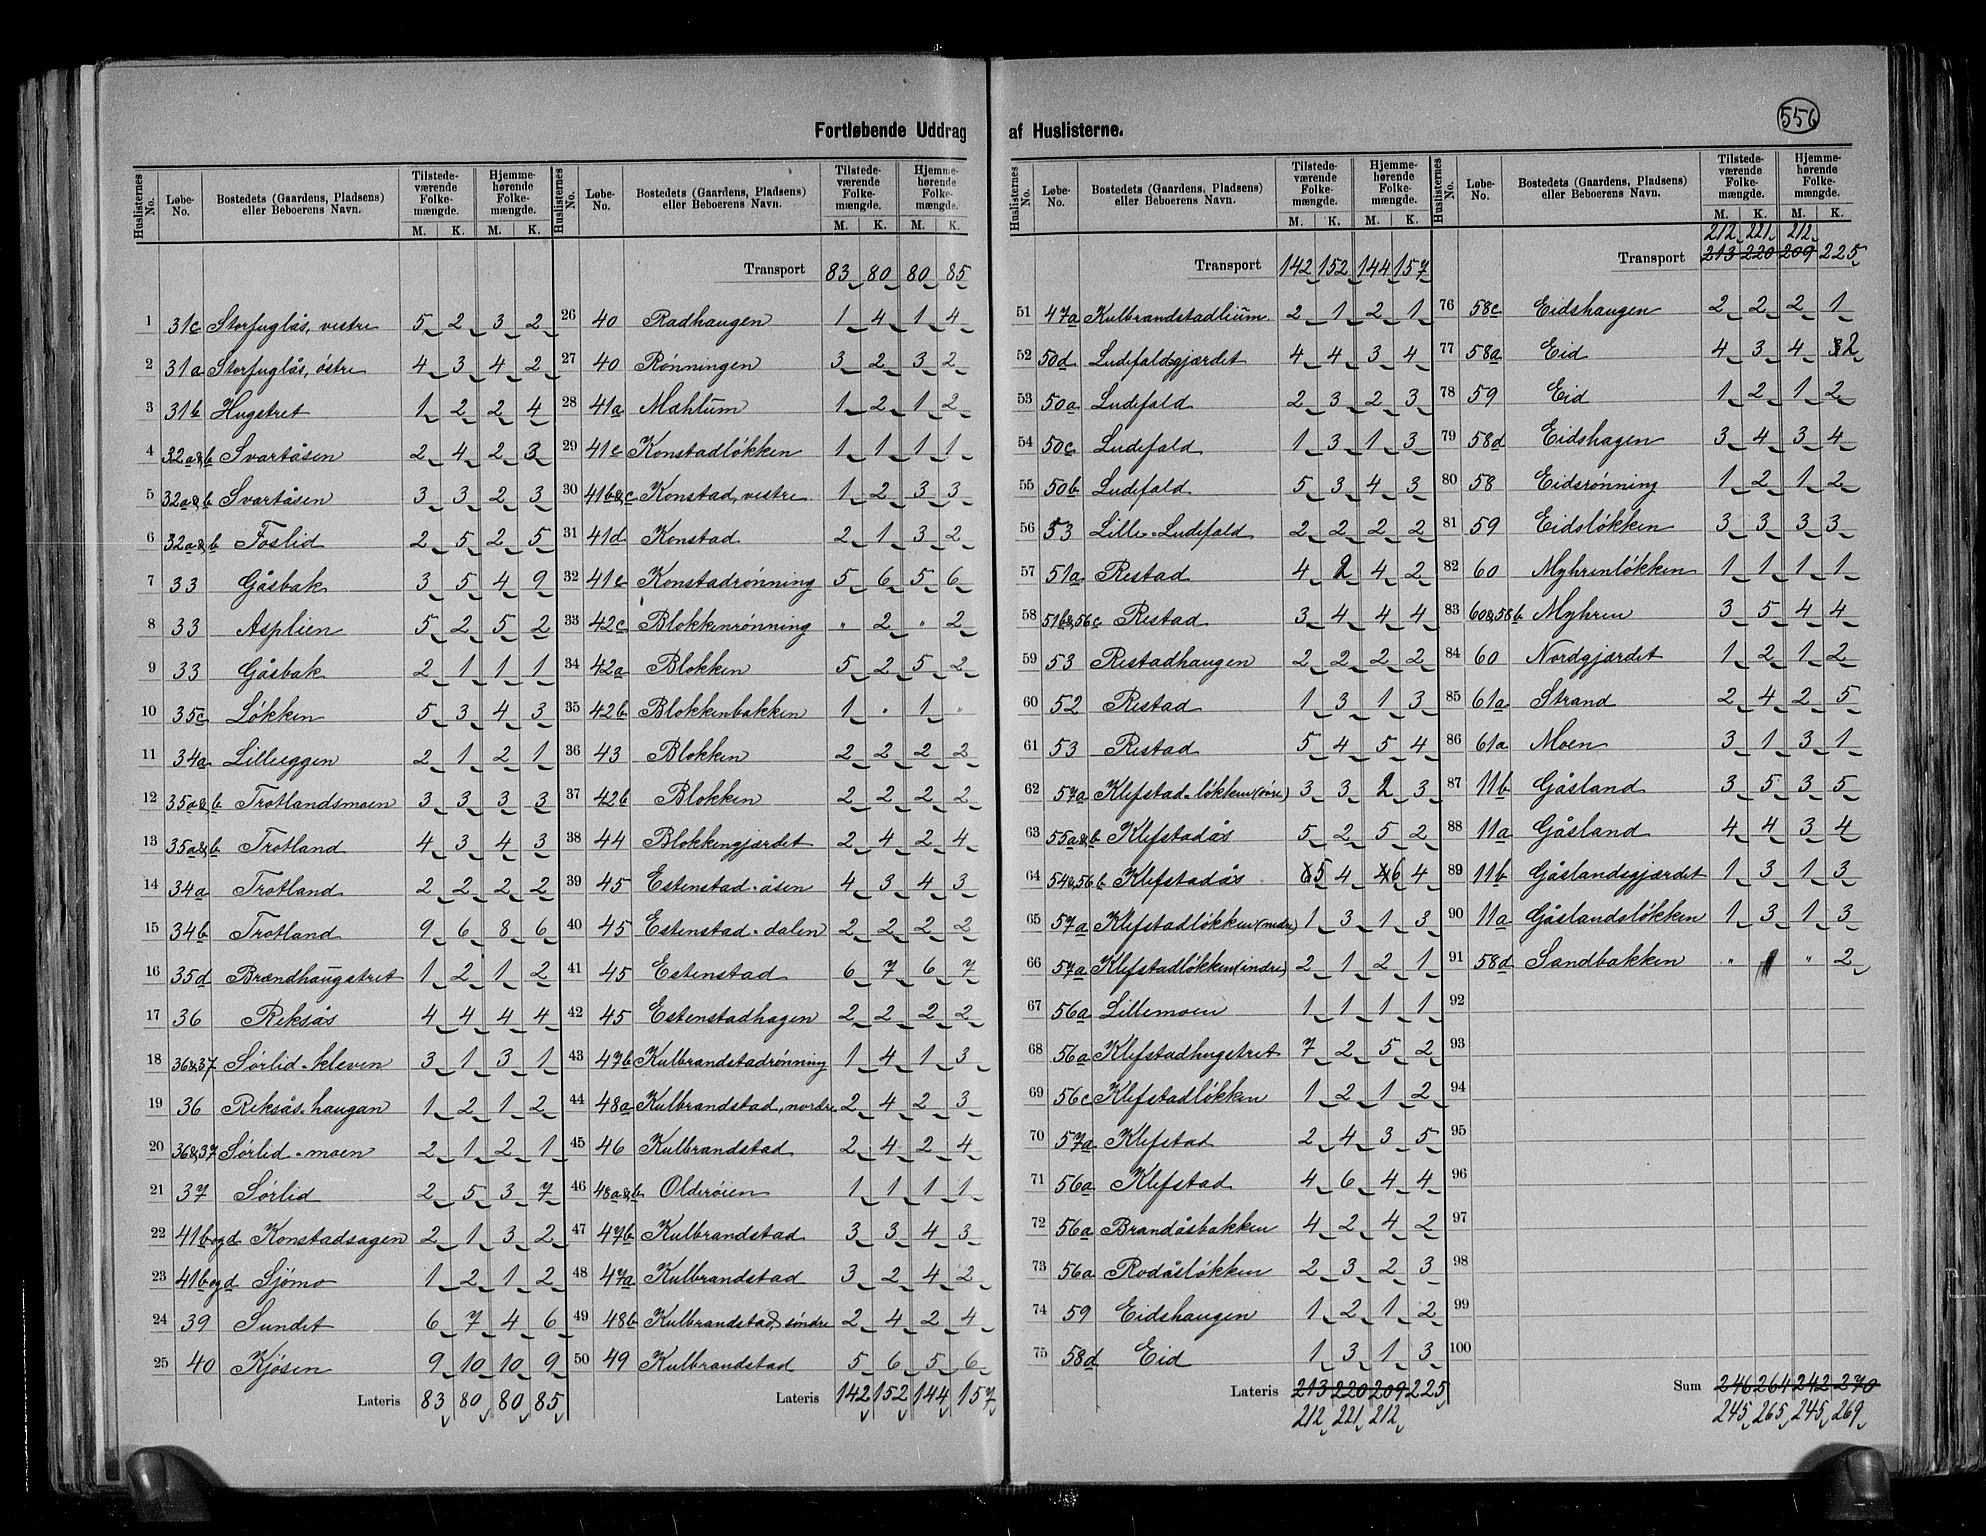 556
Fortløbende Uddrag af Huslisterne.
Huslisternes No. | Løbe-No. | Bostedets (Gaardens, Pladsens) eller Beboerens Navn. | Tilstedeværende Folkemængde. M. K. | Hjemmehørende Folkemængde. M. K.
1 31c Storfuglås, vestre 5 2 3 2
2 31a Storfuglås, østre 4 3 4 2
3 31b Hugstret 1 2 2 4
4 32a&b Svartåsen 2 4 2 3
5 32a&b Svartåsen 3 3 2 3
6 32a&b Foslid 2 5 2 5
7 33 Gåsbak 3 5 4 9
8 33 Asplien 5 2 5 2
9 33 Gåsbak 2 1 1 1
10 35c Løkken 5 3 4 3
11 34a Lilleeggen 2 1 2 1
12 35a&b Trotlandsmoen 3 3 3 3
13 35a&b Trotland 4 3 4 3
14 34a Trotland 2 2 2 2
15 34b Trotland 9 6 8 6
16 35d Brændhaugstret 1 2 1 2
17 36 Reksås 4 4 4 4
18 36&37 Sørlid-kleven 3 1 3 1
19 36 Reksås-haugan 1 2 1 2
20 36&37 Sørlid-moen 2 1 2 1
21 37 Sørlid 2 5 3 7
22 41bogd Konstadsagen 2 1 3 2
23 41bogd Sjømo 1 2 1 2
24 39 Sundet 6 7 4 6
25 40 Kjøsen 9 10 10 9
Lateris 83 80 80 85
Transport 83 80 80 85
26 40 Radhaugen 1 4 1 4
27 40 Rønningen 3 2 3 2
28 41a Mahlum 1 2 1 2
29 41c Konstadløkken 1 1 1 1
30 41b&c Konstad, vestre 1 2 3 3
31 41d Konstad 2 1 3 2
32 41c Konstadrønning 5 6 5 6
33 42c Blokkenrønning " 2 " 2
34 42a Blokken 5 2 5 2
35 42b Blokkenbakken 1 " 1 "
36 43 Blokken 2 2 2 2
37 42b Blokken 2 2 2 2
38 44 Blokkengjærdet 2 4 2 4
39 45 Estenstad-åsen 4 3 4 3
40 45 Estenstad-dalen 2 2 2 2
41 45 Estenstad 6 7 6 7
42 45 Estenstadhagen 2 2 2 2
43 47b Kulbrandstadrønning 1 4 1 3
44 48a Kulbrandstad, nordre 2 4 2 3
45 46 Kulbrandstad 2 4 2 4
46 48a&b Olderøien 1 1 1 1
47 47b Kulbrandstad 3 3 4 3
48 47a Kulbrandstad 3 2 4 2
49 48b Kulbrandstad, søndre 2 4 2 4
50 49 Kulbrandstad 5 6 5 6
Lateris 142 152 144 157
Transport 142 152 144 157
51 47a Kulbrandstadlium 2 1 2 1
52 50d Ludefaldsgjærdet 4 4 3 4
53 50a Ludefald 2 3 2 3
54 50c Ludefald 1 3 1 3
55 50b Ludefald 5 3 4 3
56 53 Lille-Ludefald 2 2 2 2
57 51a Restad 4 2 4 2
58 51b&56c Restad 3 4 4 4
59 53 Restadhaugen 2 2 2 2
60 52 Restad 1 3 1 3
61 53 Restad 5 4 5 4
62 57a Klefstad-løkken (øvre) 3 3 2 3
63 55a&b Klefstadås 5 2 5 2
64 54&56b Klefstadås 5 4 6 4
65 57a Klefstadløkken (nedre) 1 3 1 3
66 57a Klefstadløkken (indre) 2 1 2 1
67 56a Lillemoen 1 1 1 1
68 56a Klefstadhugstret 7 2 5 2
69 56c Klefstadløkken 1 2 1 2
70 57a Klefstad 2 4 3 5
71 56a Klefstad 4 6 4 4
72 56a Brandåsbakken 4 2 4 2
73 56a Rodåsløkken 2 3 2 3
74 59 Eidshaugen 1 2 1 2
75 58d Eid 1 3 1 3
Lateris 213 220 209 225
212 221 212
212 221 212
Transport 213 220 209 225
76 58c Eidshaugen 2 2 2 1
77 58a Eid 4 3 4 2
78 59 Eid 1 2 1 2
79 58d Eidshagen 3 4 3 4
80 58 Eidsrønning 1 2 1 2
81 59 Eidsløkken 3 3 3 3
82 60 Myhrenløkken 1 1 1 1
83 60&58b Myhren 3 5 4 4
84 60 Nordgjærdet 1 2 1 2
85 61a Strand 2 4 2 5
86 61a Moen 3 1 3 1
87 11b Gåsland 3 5 3 5
88 11a Gåsland 4 4 3 4
89 11b Gåslandsgjærdet 1 3 1 3
90 11a Gåslandsløkken 1 3 1 3
91 58d Sandbakken " 1 " 2
92
93
94
95
96
97
98
99
100
Sum 246 264 242 270
245 265 245 269